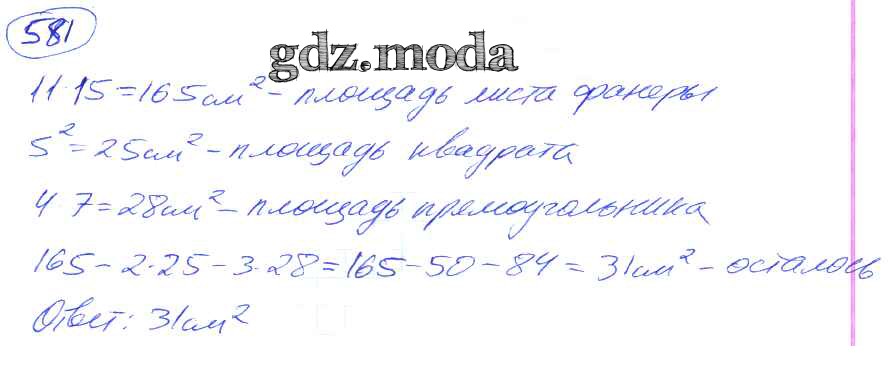 581
gdz.moda
11·15=165см² - площадь листа фанеры
5²=25см² - площадь квадрата
4·7=28см² - площадь прямоугольника
165-2·25-3·28=165-50-84=31см² - осталось
Ответ: 31см²